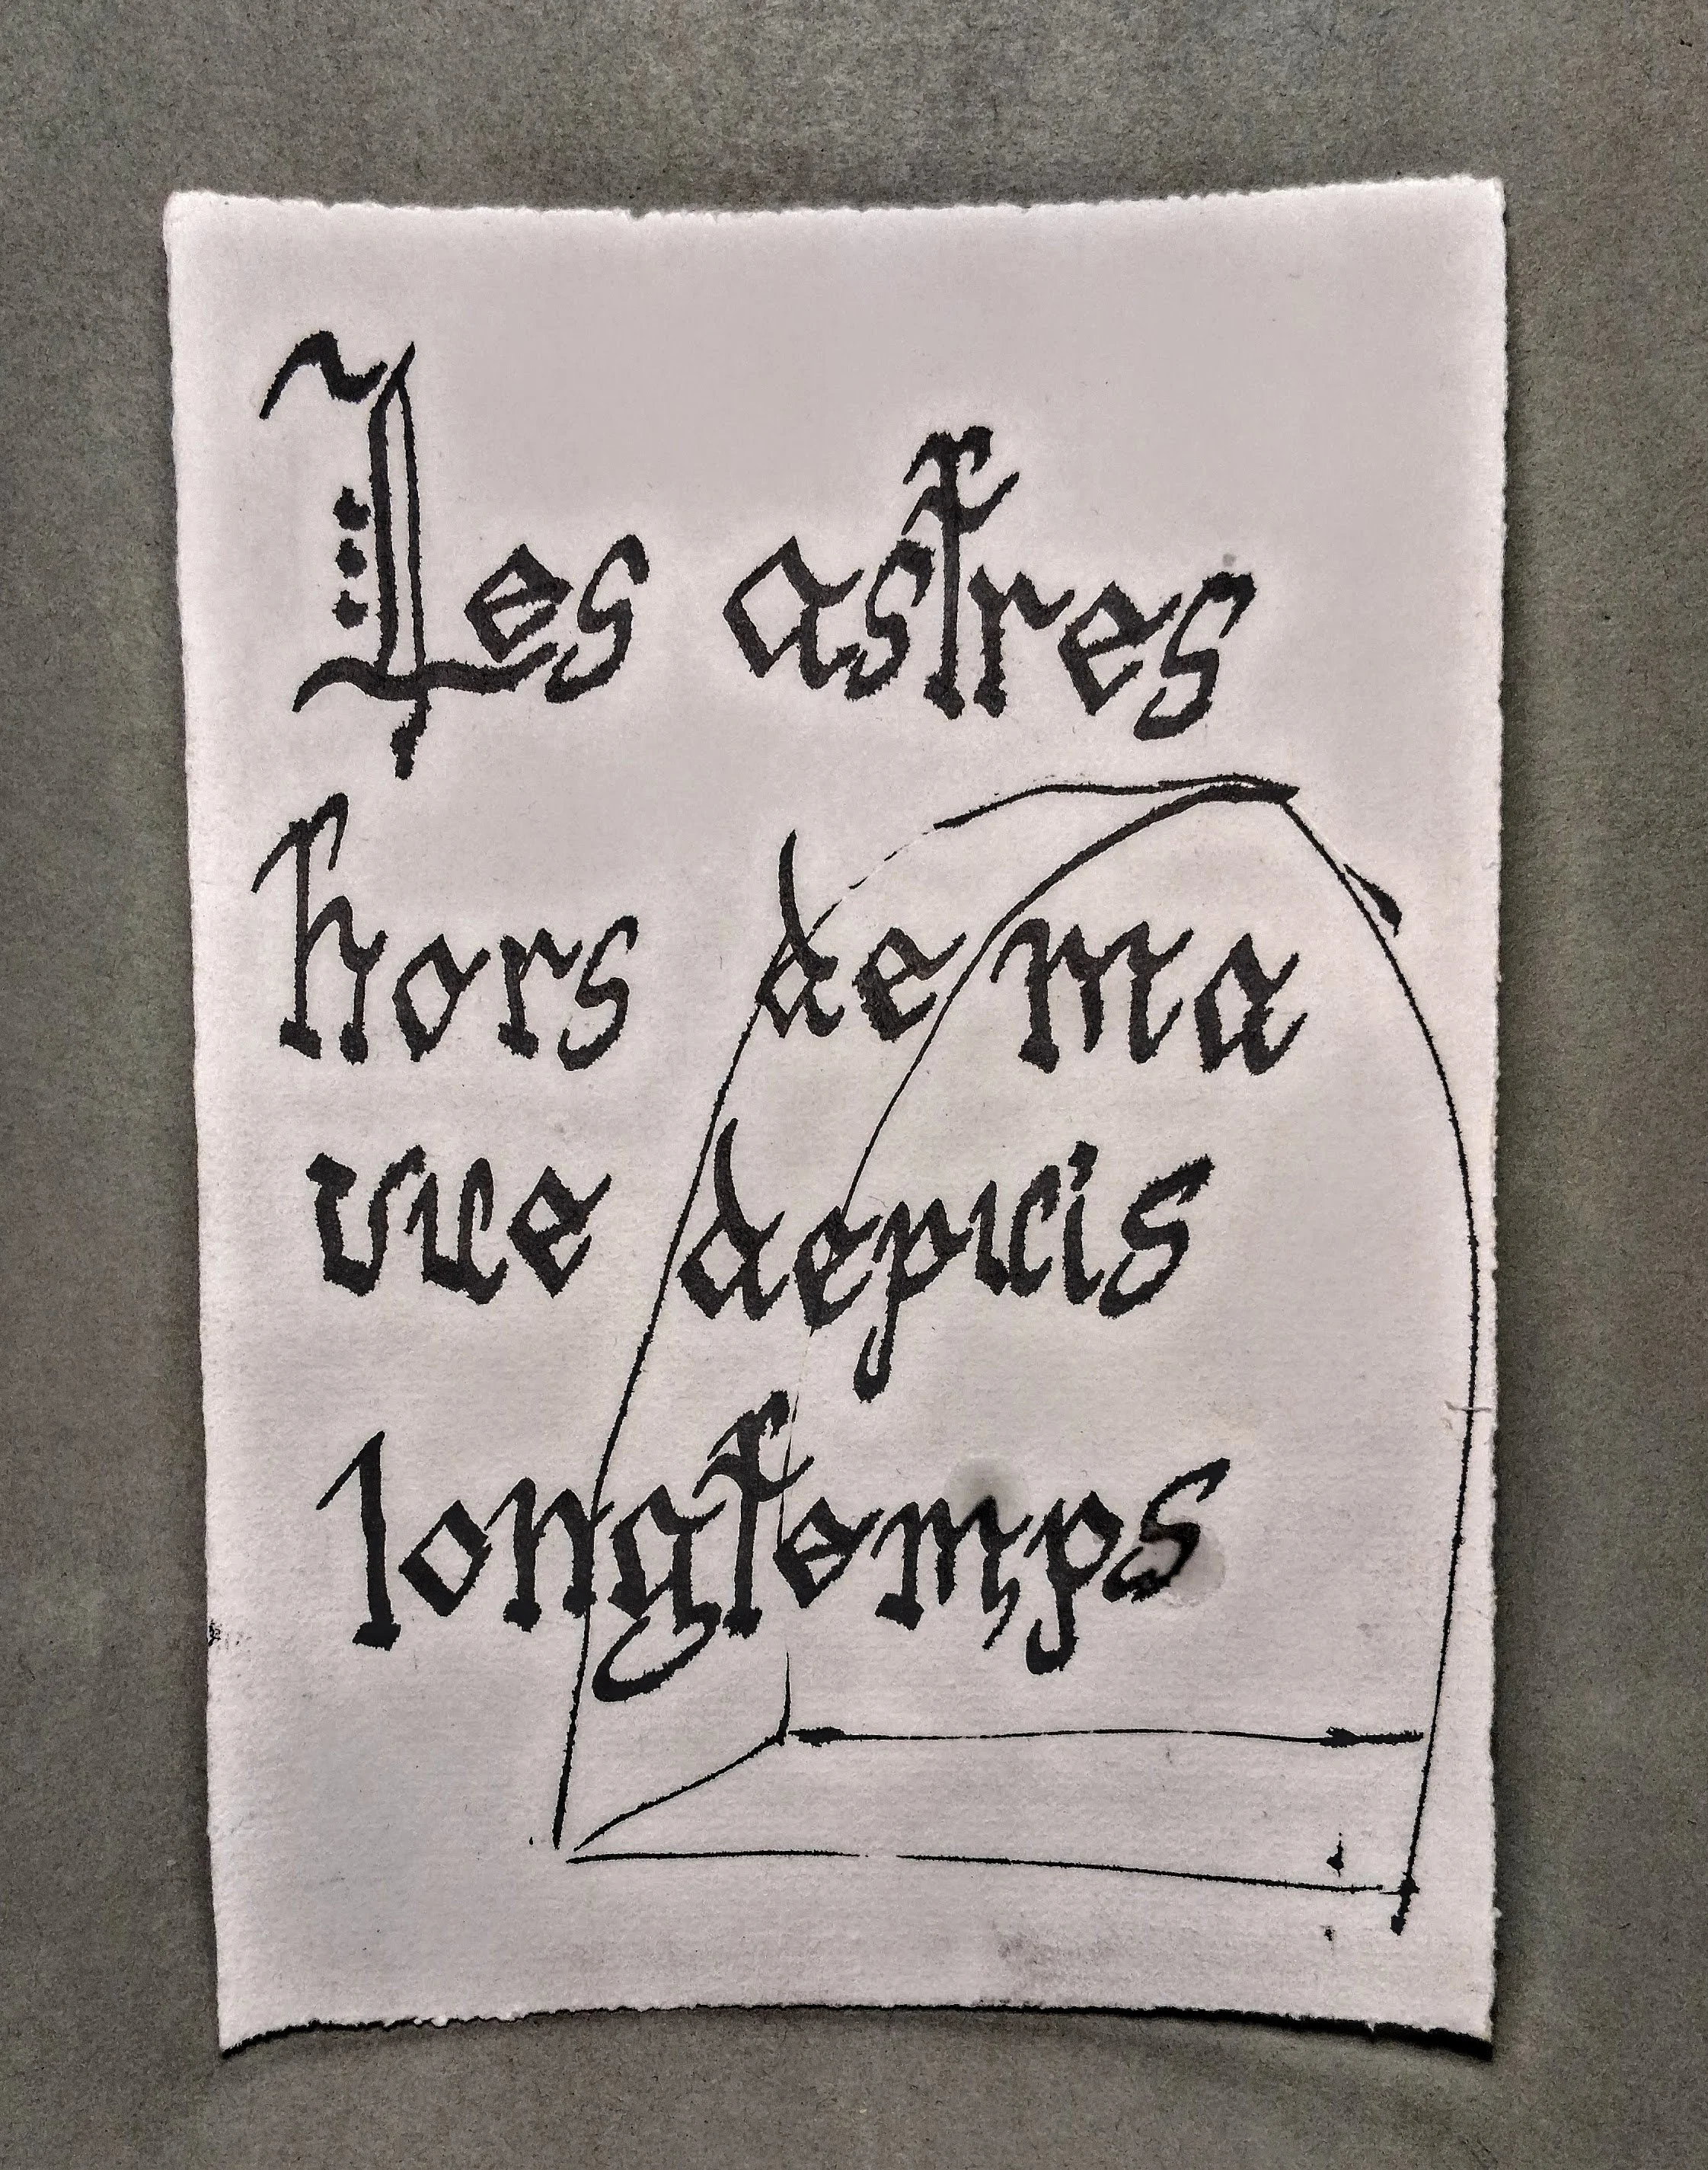 Les astres
hors de ma
vue depuis
longtemps